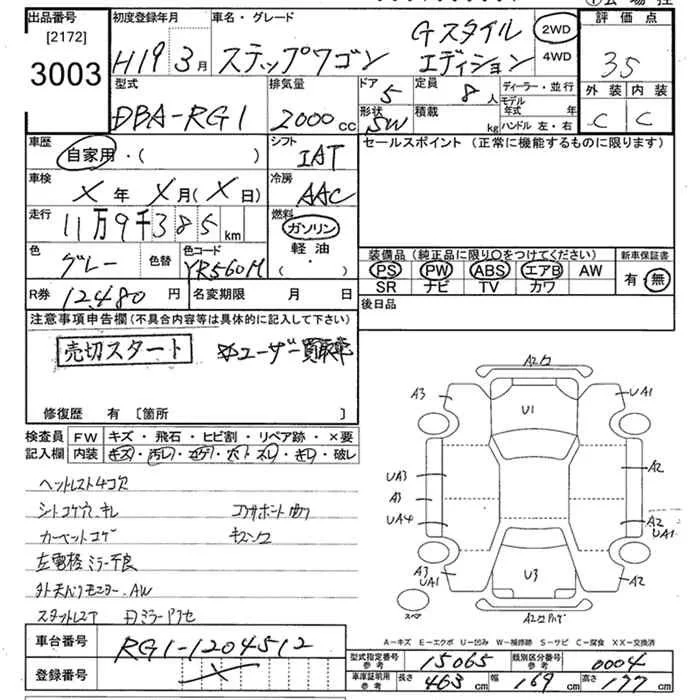 出品番号 初度登録年月 車名・グレード
[2172] 3003
H19 3月 ステップワゴン Gスタイル エディション 2WD 4WD
評価点 35
外装 内装
C C
型式 排気量 ドア 定員 ディーラー・並行
DBA-RG1 2000cc 5 8人
形状 積載 モデル年式 年
SW kg ハンドル 左・右
車歴 シフト セールスポイント (正常に機能するものに限ります)
自家用・( ) IAT
車検 冷房
X年 X月(X日) AAC
走行 燃料
11万9千385km ガソリン
色 色替 色コード 軽油
グレー YR560M ・( )
装備品 (純正品に限り○をつけてください) 新車保証書
PS PW ABS エアB AW 有・無
SR ナビ TV カワ
R券 12,480円 名変期限 月 日 後日品
注意事項申告欄(不具合内容等は具体的に記入して下さい)
売切スタート ※ユーザー買取車
修復歴 有 [箇所 ]
検査員 FW キズ・飛石・ヒビ割・リペア跡・×要
記入欄 内装 キズ・汚レ・コゲ・穴・スレ・キレ・破レ
ヘットレスト4コ欠
シートコゲ穴キレ
カーペットコゲ
左電格ミラー不良
外天ハリモニター.AW
A2
A3 U1 UA1
UA3 A2
A3
UA4 A2 UA1
A3 UA1 U3 A2
スペア
A-キズ E-エクボ U-凹み W-補修跡 S-サビ C-腐食 XX-交換済
車台番号 RG1-1204512
登録番号
型式指定番号 参考 15065 類別区分番号 参考 0004
車庫証明用 参考 長さ 463cm 幅 169cm 高さ 177cm